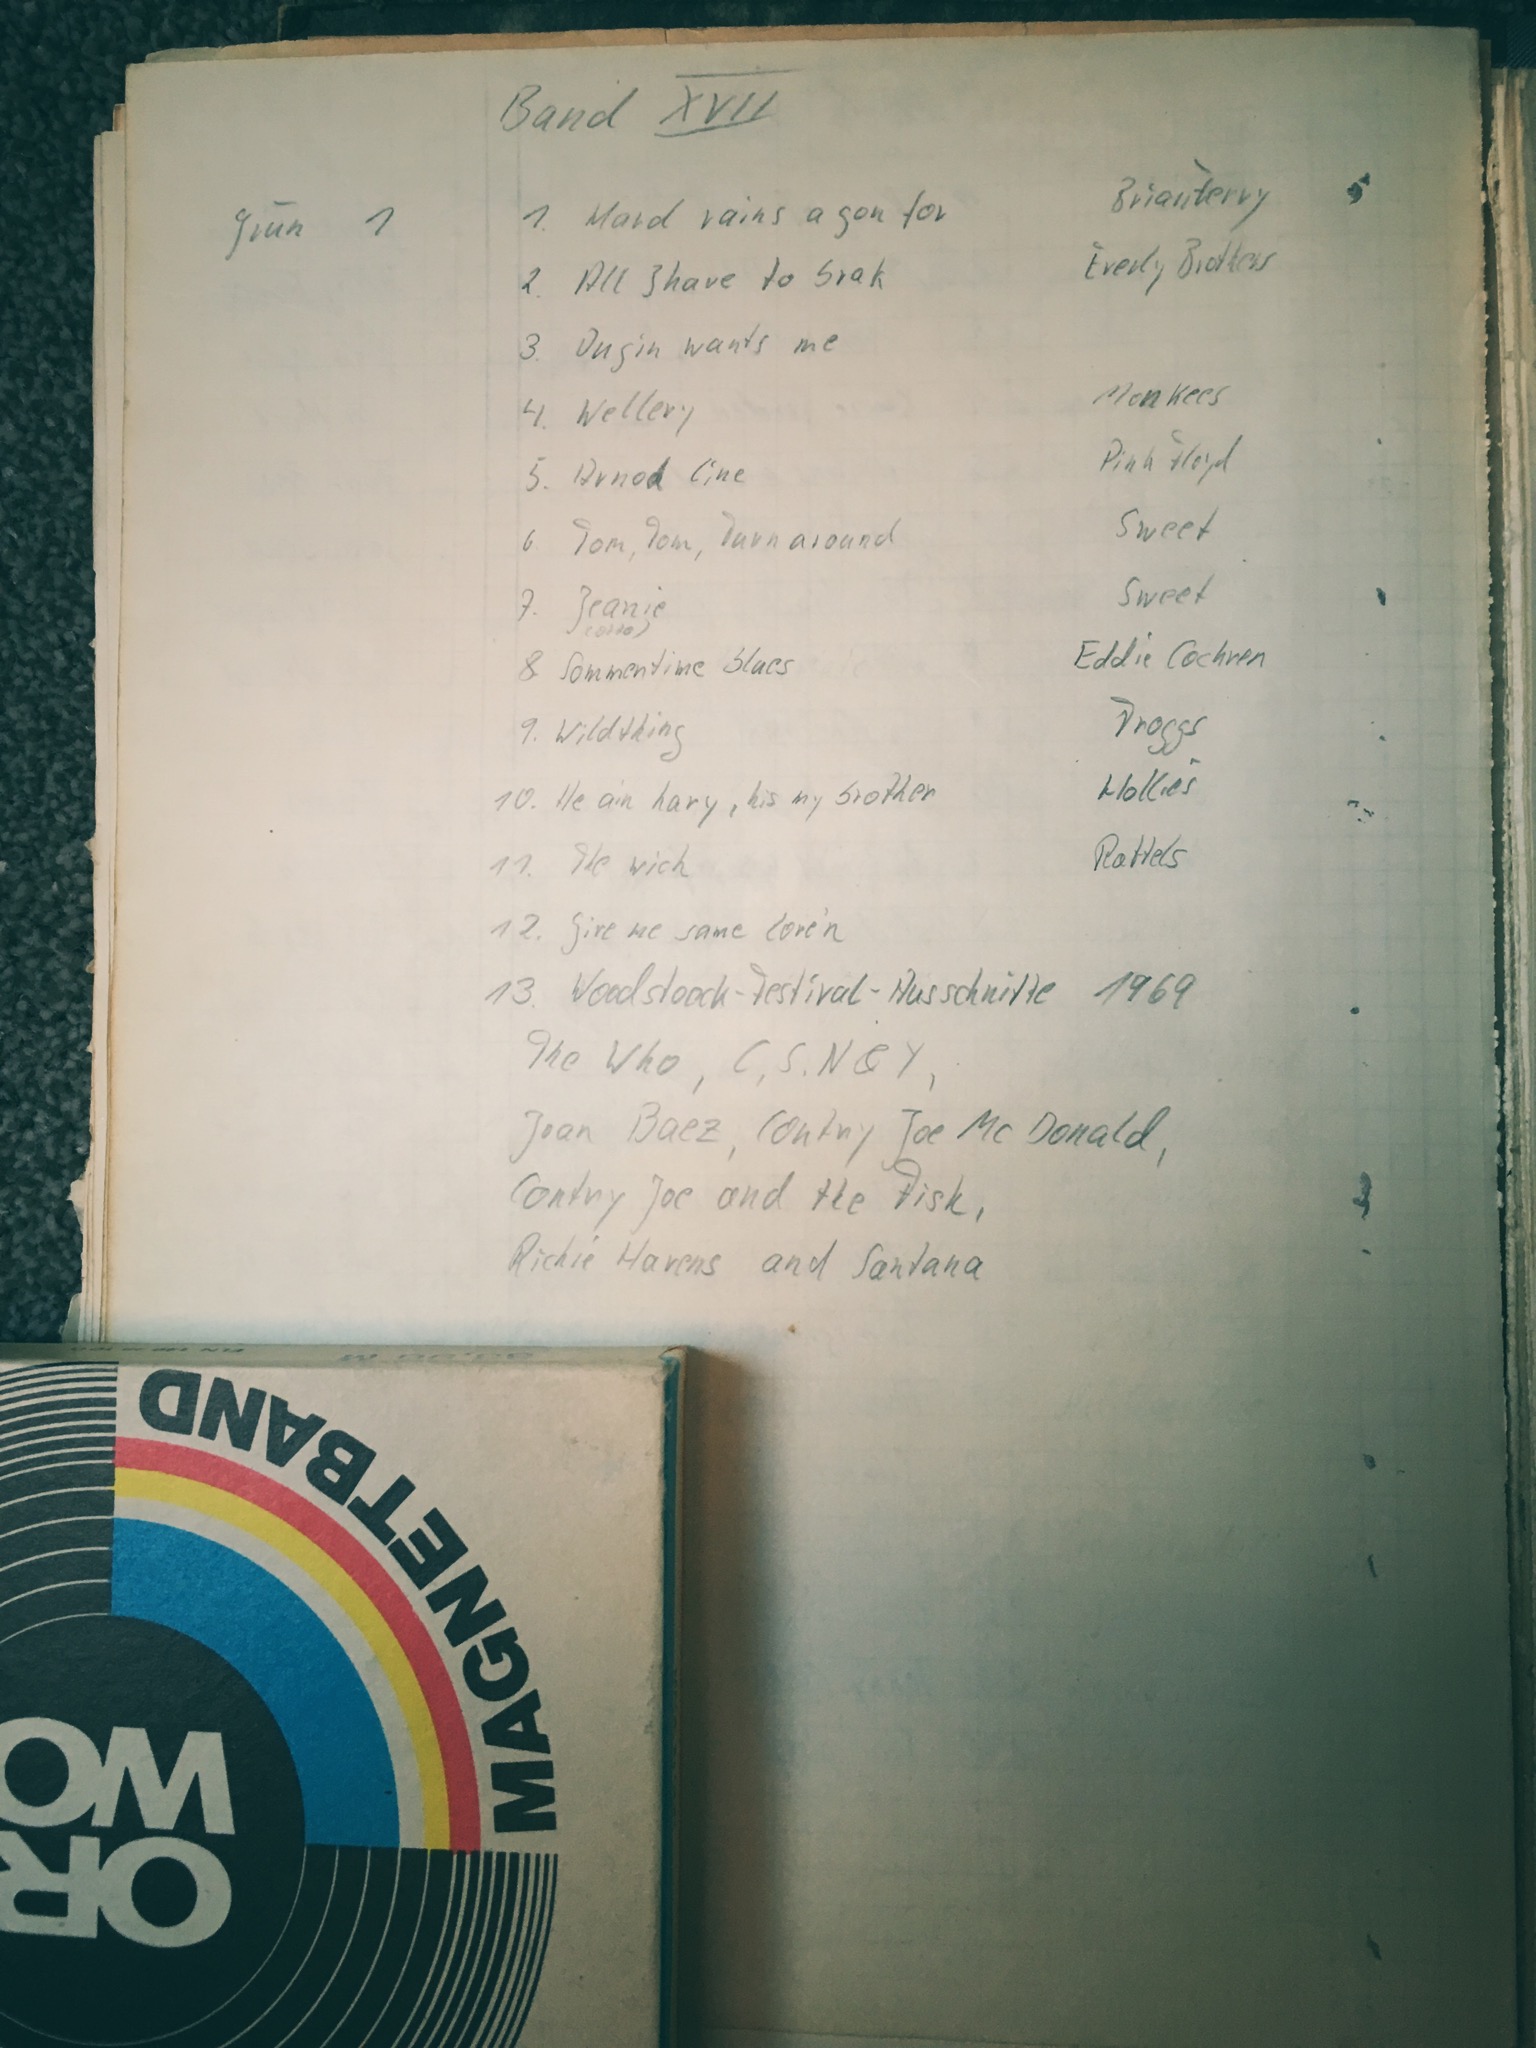 Band XVII
Grün 1
1. Hard rains a gon for Brian Ferry
2. All I have to brak Everly Brothers
3. Ougin wants me
4. Wellery Monkees
5. Arnod Line Pink Floyd
6 Tom, Tom, Turn around Sweet
7. Jeanie Sweet
8 Sommertime blues Eddie Cochren
9. Wildthing Troggs
10. He ain havy, his my brother Hollies
11. The wich Rattels
12. Give me same Lore'n
13. Woodstoock-Festival-Ausschnitte 1969
The Who, C, S. N & Y,
Joan Baez, Contry Joe Mc Donald,
Contry Joe and the Fish,
Richie Havens and Santana
MAGNETBAND
ORWO